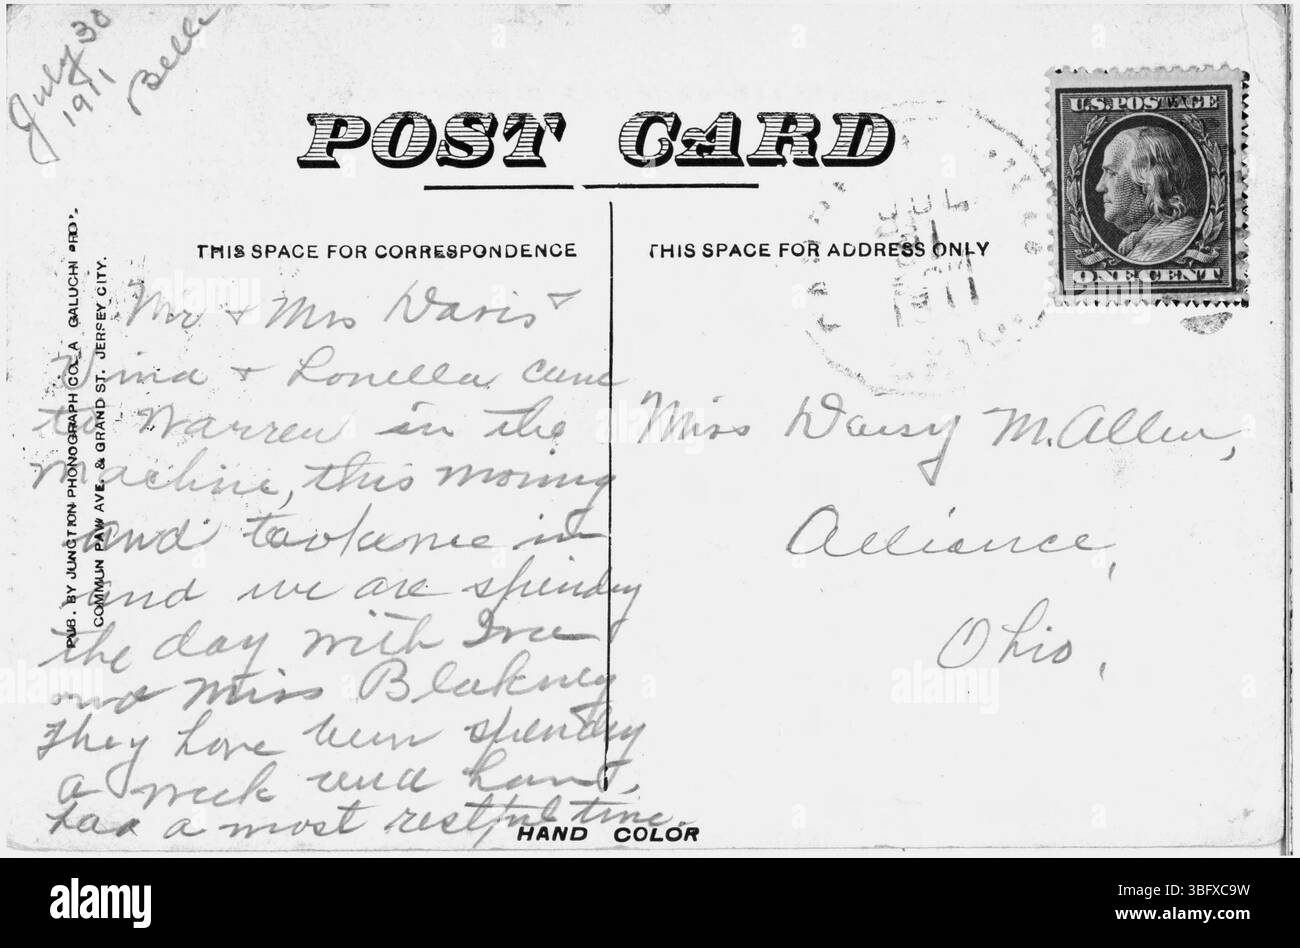 July 30
1911
Belle
POST CARD
U.S. POSTAGE
ONE CENT
THIS SPACE FOR CORRESPONDENCE
THIS SPACE FOR ADDRESS ONLY
JUL
31
1911
PUB. BY JUNCTION PHONOGRAPH CO. A GALUCHI PROP.
COMMUN PAW AVE. & GRAND ST. JERSEY CITY.
Mr + Mrs Davis +
Vina + Lonella came
to Warren in the
machine, this morning
and took me in
and we are spending
the day with
and Miss Blakney
They have been spending
a week and
had a most restful time.
Miss Daisy M. Allen,
Alliance,
Ohio,
HAND COLOR
alamy
Image ID: 3BFXC9W
www.alamy.com